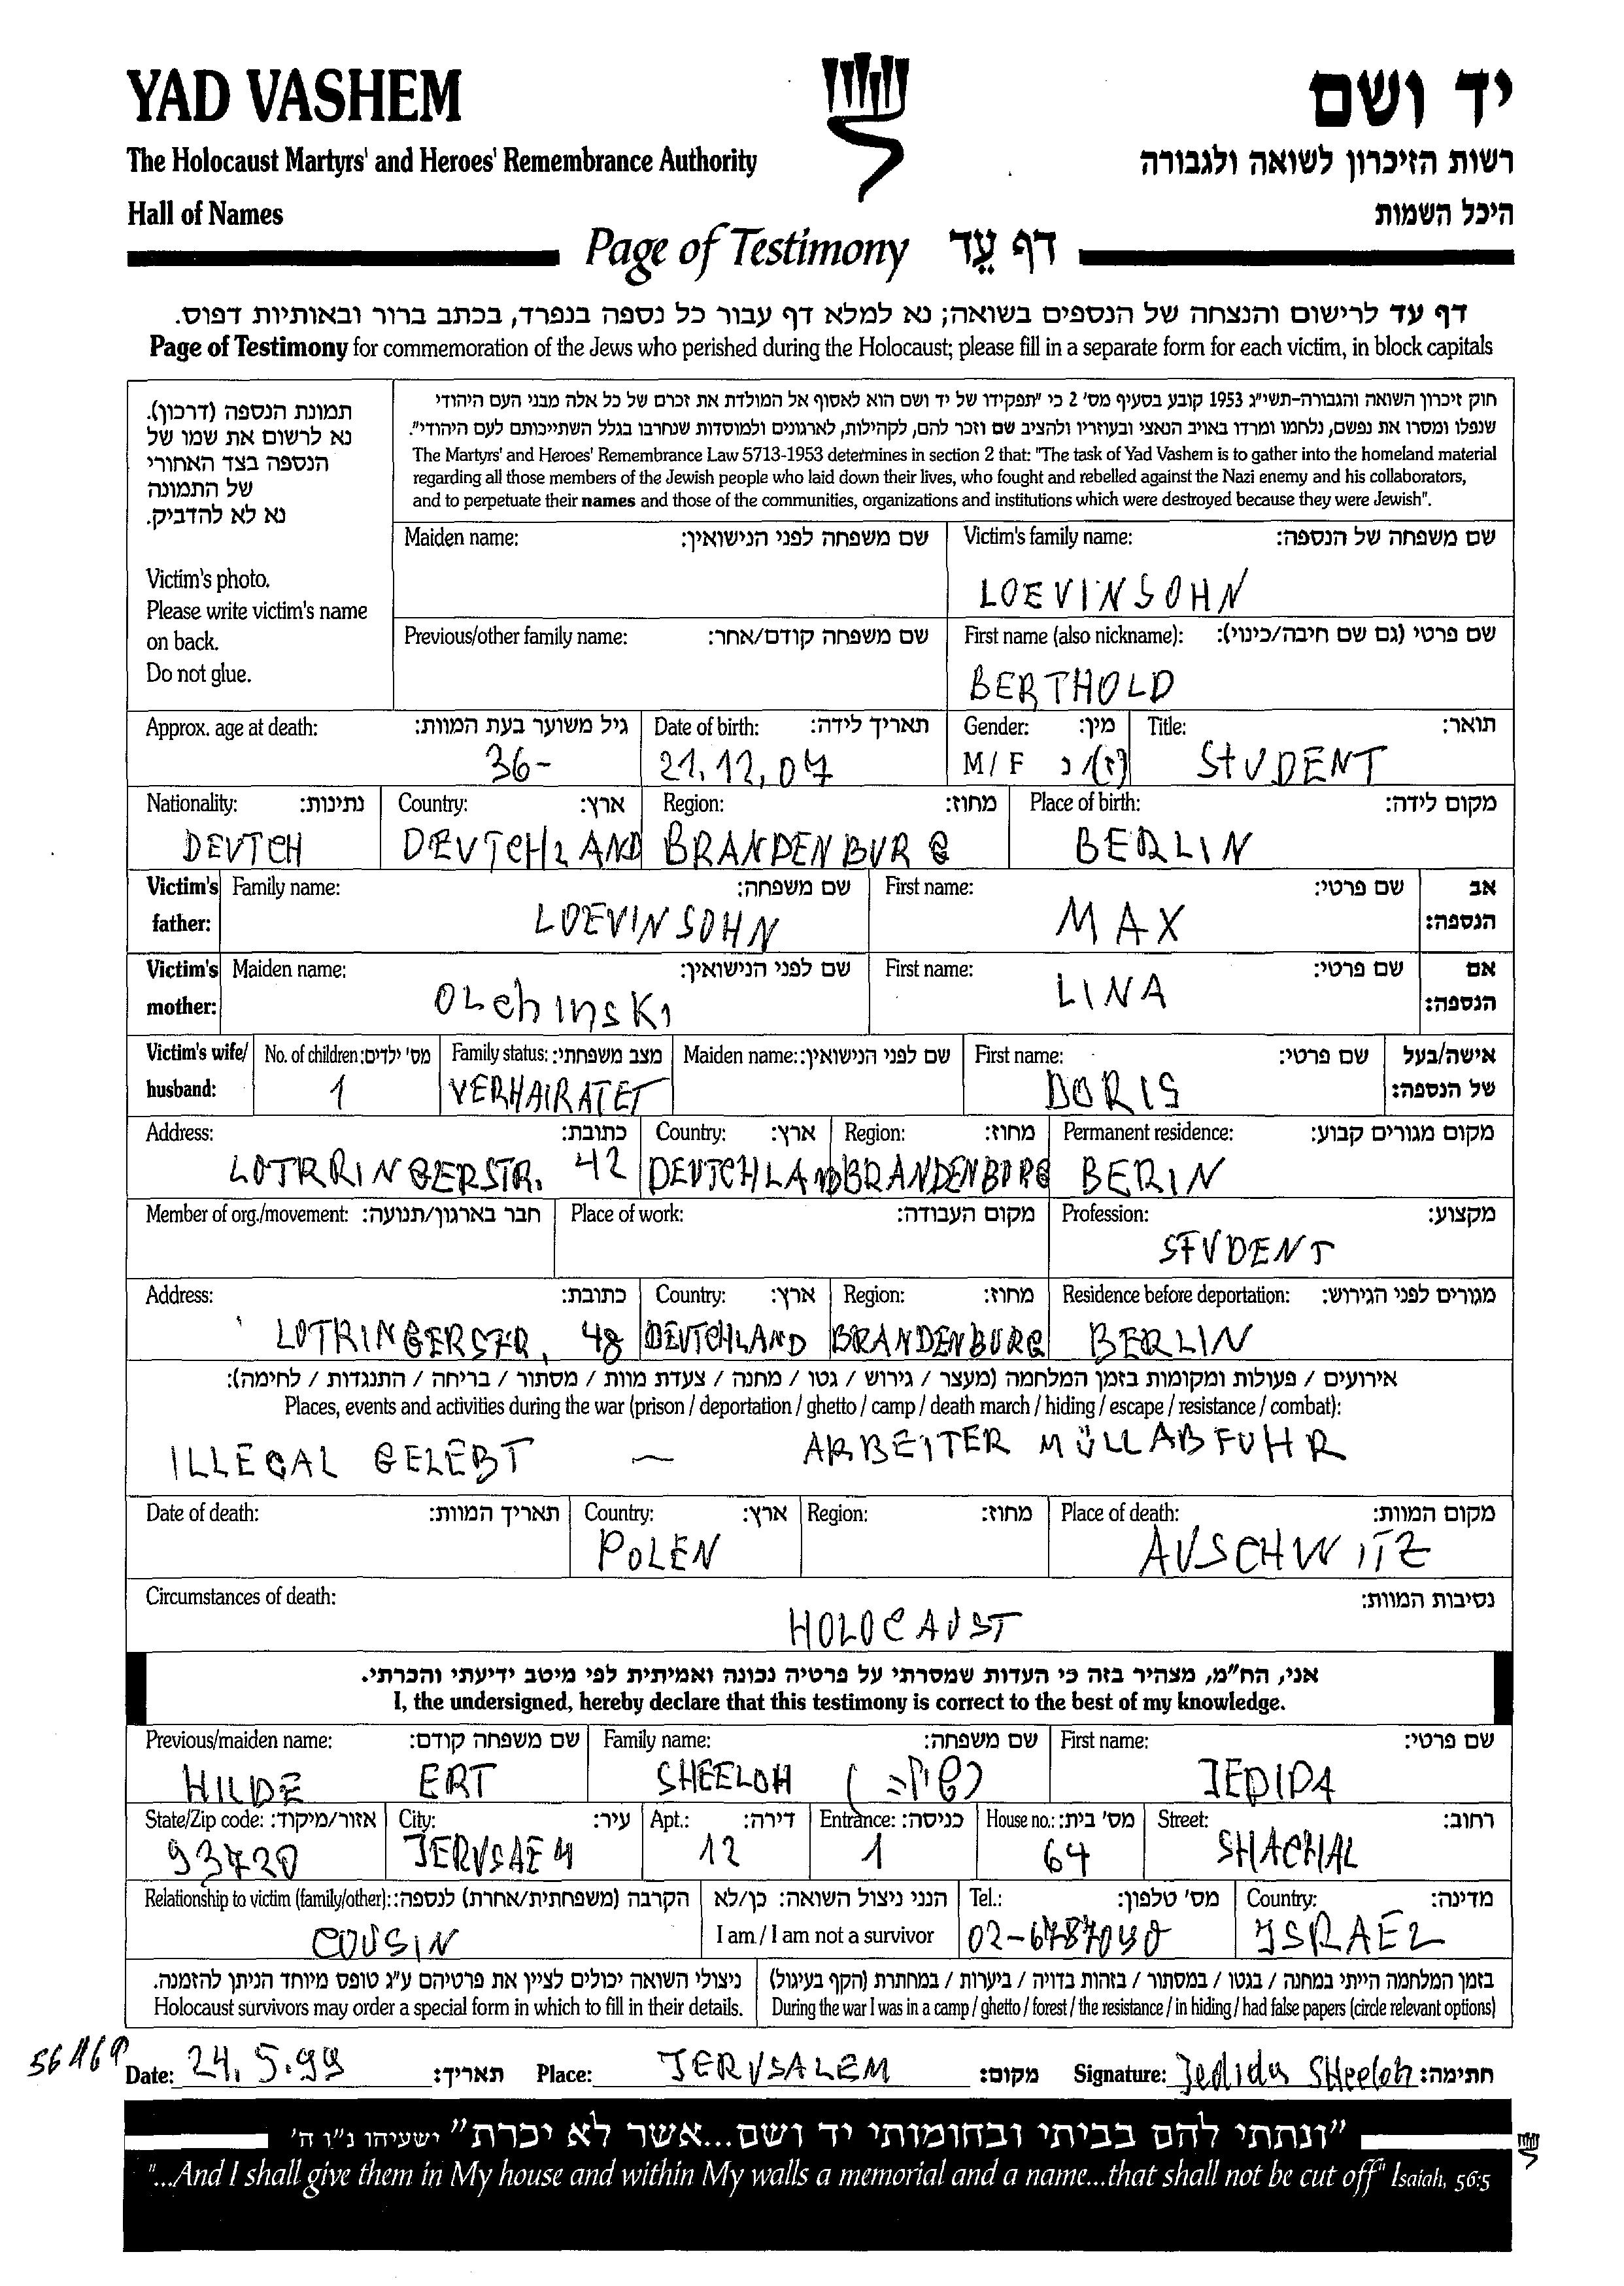 YAD VASHEM
יד ושם
The Holocaust Martyrs' and Heroes' Remembrance Authority
רשות הזיכרון לשואה ולגבורה
Hall of Names
היכל השמות
Page of Testimony דף עֵד
דף עד לרישום והנצחה של הנספים בשואה; נא למלא דף עבור כל נספה בנפרד, בכתב ברור ובאותיות דפוס.
Page of Testimony for commemoration of the Jews who perished during the Holocaust; please fill in a separate form for each victim, in block capitals
תמונת הנספה (דרכון).
נא לרשום את שמו של
הנספה בצד האחורי
של התמונה
נא לא להדביק.
Victim's photo.
Please write victim's name
on back.
Do not glue.
חוק זיכרון השואה והגבורה-תשי"ג 1953 קובע בסעיף מס' 2 כי "תפקידו של יד ושם הוא לאסוף אל המולדת את זכרם של כל אלה מבני העם היהודי
שנפלו ומסרו את נפשם, נלחמו ומרדו באויב הנאצי ובעוזריו ולהציב שם וזכר להם, לקהילות, לארגונים ולמוסדות שנחרבו בגלל השתייכותם לעם היהודי".
The Martyrs' and Heroes' Remembrance Law 5713-1953 determines in section 2 that: "The task of Yad Vashem is to gather into the homeland material
regarding all those members of the Jewish people who laid down their lives, who fought and rebelled against the Nazi enemy and his collaborators,
and to perpetuate their names and those of the communities, organizations and institutions which were destroyed because they were Jewish".
Maiden name: שם משפחה לפני הנישואין:
Victim's family name: שם משפחה של הנספה:
LOEVINSOHN
Previous/other family name: שם משפחה קודם/אחר:
First name (also nickname): שם פרטי (גם שם חיבה/כינוי):
BERTHOLD
Approx. age at death: גיל משוער בעת המוות: Date of birth: תאריך לידה: Gender: מין: Title: תואר:
36- 21.12.07 M / F ז/נ STUDENT
Nationality: נתינות: Country: ארץ: Region: מחוז: Place of birth: מקום לידה:
DEUTCH DEUTCHLAND BRANDENBURG BERLIN
Victim's father: Family name: שם משפחה: First name: שם פרטי: אב הנספה:
LOEVINSOHN MAX
Victim's mother: Maiden name: שם לפני הנישואין: First name: שם פרטי: אם הנספה:
OLchinski LINA
Victim's wife/ husband: No. of children: מס' ילדים: Family status: מצב משפחתי: Maiden name: שם לפני הנישואין: First name: שם פרטי: אישה/בעל של הנספה:
1 VERHAIRATET DORIS
Address: כתובת: Country: ארץ: Region: מחוז: Permanent residence: מקום מגורים קבוע:
LOTRRINGERSTR. 42 DEUTCHLAND BRANDENBURG BERIN
Member of org./movement: חבר בארגון/תנועה: Place of work: מקום העבודה: Profession: מקצוע:
STUDENT
Address: כתובת: Country: ארץ: Region: מחוז: Residence before deportation: מגורים לפני הגירוש:
LOTRINGERSTR. 48 DEUTCHLAND BRANDENBURG BERLIN
אירועים / פעולות ומקומות בזמן המלחמה (מעצר / גירוש / גטו / מחנה / צעדת מוות / מסתור / בריחה / התנגדות / לחימה):
Places, events and activities during the war (prison / deportation / ghetto / camp / death march / hiding / escape / resistance / combat):
ILLEGAL GELEBT – ARBEITER MÜLLABFUHR
Date of death: תאריך המוות: Country: ארץ: Region: מחוז: Place of death: מקום המוות:
POLEN AUSCHWITZ
Circumstances of death: נסיבות המוות:
HOLOCAUST
אני, הח"מ, מצהיר בזה כי העדות שמסרתי על פרטיה נכונה ואמיתית לפי מיטב ידיעתי והכרתי.
I, the undersigned, hereby declare that this testimony is correct to the best of my knowledge.
Previous/maiden name: שם משפחה קודם: Family name: שם משפחה: First name: שם פרטי:
HILDE ERT SHEELOH JEDIDA
State/Zip code: אזור/מיקוד: City: עיר: Apt.: דירה: Entrance: כניסה: House no.: מס' בית: Street: רחוב:
93720 JERUSAEM 12 1 64 SHACHAL
Relationship to victim (family/other): הקרבה (משפחתית/אחרת) לנספה: הנני ניצול השואה: כן/לא Tel.: מס' טלפון: Country: מדינה:
COUSIN I am / I am not a survivor 02-6787040 ISRAEL
ניצולי השואה יכולים לציין את פרטיהם ע"ג טופס מיוחד הניתן להזמנה.
Holocaust survivors may order a special form in which to fill in their details.
בזמן המלחמה הייתי במחנה / בגטו / במסתור / בזהות בדויה / ביערות / במחתרת (הקף בעיגול)
During the war I was in a camp / ghetto / forest / the resistance / in hiding / had false papers (circle relevant options)
Date: 24.5.99 תאריך: Place: JERUSALEM מקום: Signature: Jedida Sheeloh חתימה:
"ונתתי להם בביתי ובחומותי יד ושם...אשר לא יכרת" ישעיהו נ"ו ה'
"...And I shall give them in My house and within My walls a memorial and a name...that shall not be cut off" Isaiah, 56:5